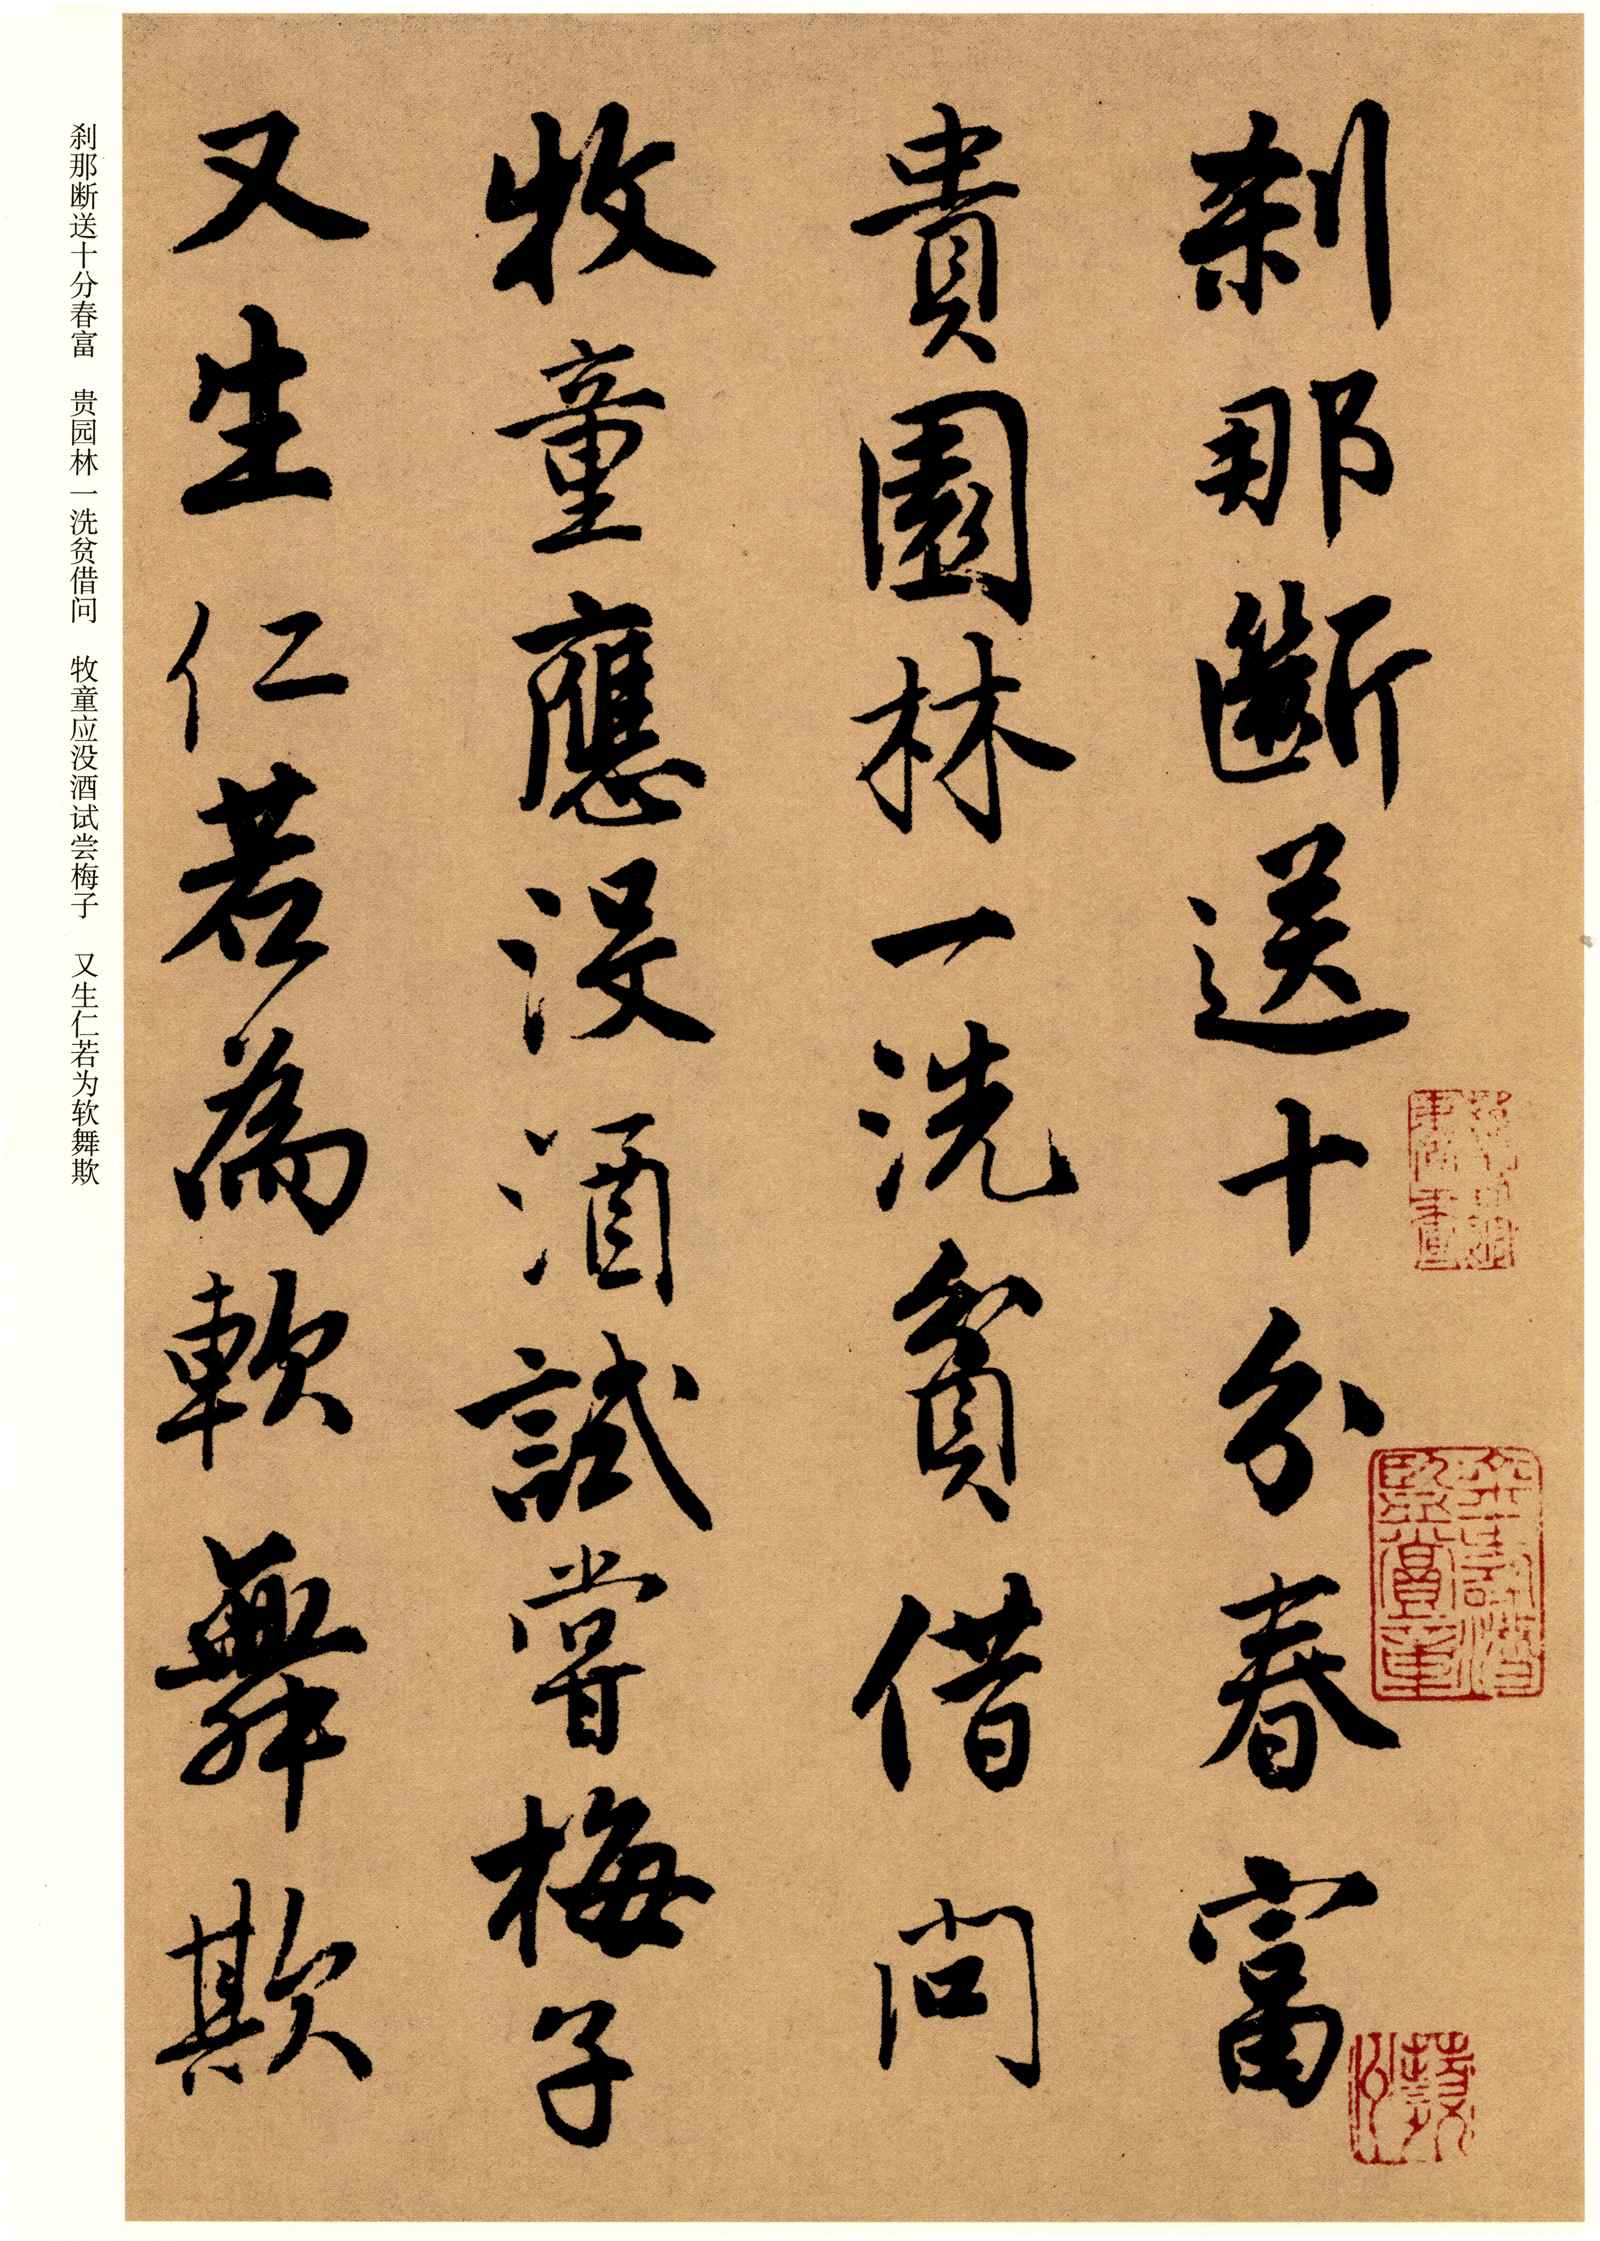 刹那斷送十分春富
貴園林一洗貧借問
牧童應没酒試嘗梅子
又生仁若為軟舞欺
刹那断送十分春富　贵园林一洗贫借问　牧童应没酒试尝梅子　又生仁若为软舞欺